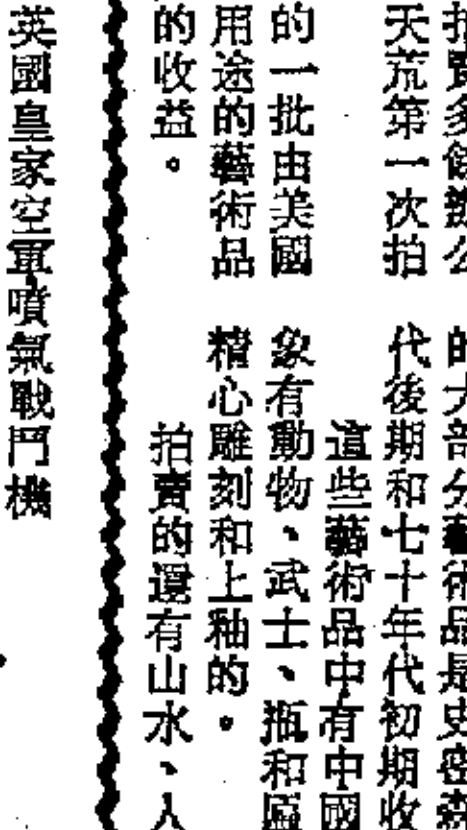 拍賣多餘辦公
天荒第一次拍
的一批由美國
用途的藝術品
的收益。
的大部分藝術品是史密森
代後期和七十年代初期收
這些藝術品中有中國
象有動物、武士、瓶和
精心雕刻和上釉的。
拍賣的還有山水、人
英國皇家空軍噴氣戰鬥機